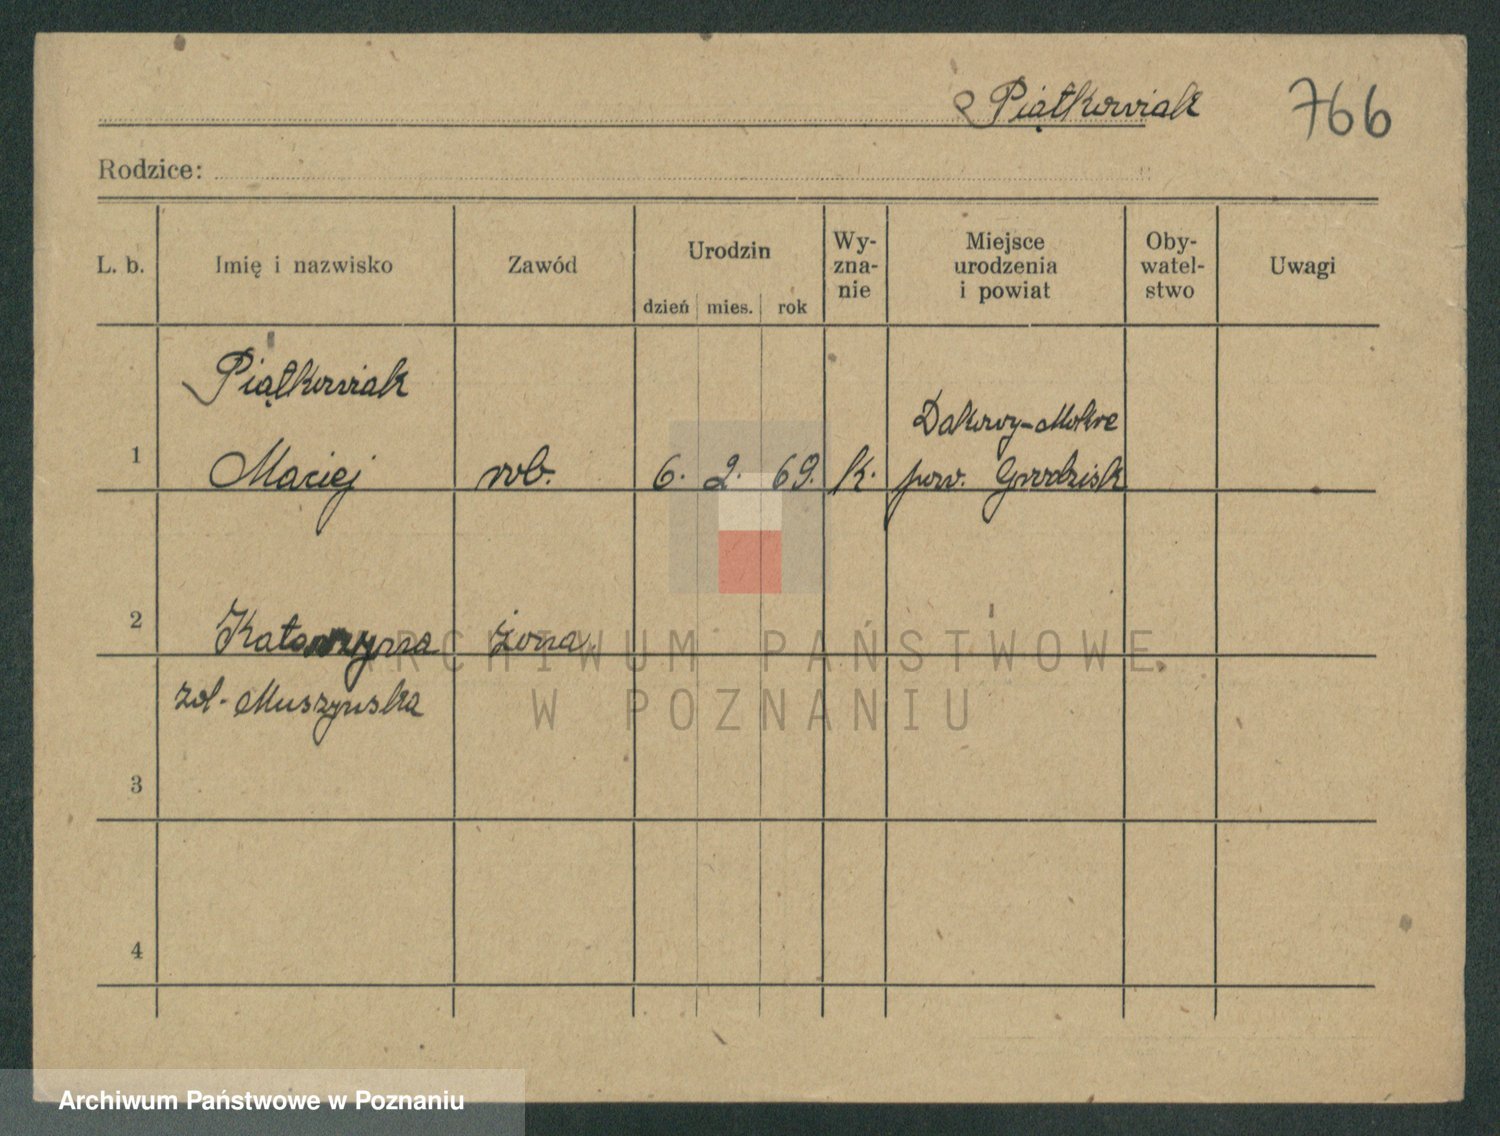 Piątkowiak 766
Rodzice:
L. b. Imię i nazwisko Zawód Urodzin dzień mies. rok Wy-zna-nie Miejsce urodzenia i powiat Oby-watel-stwo Uwagi
Piątkowiak
1 Maciej rob. 6. 2. 69. k. Dakowy-Mokre pow. Grodzisk
2 Katarzyna żona
zd. Muszyńska
3
4
ARCHIWUM PAŃSTWOWE
W POZNANIU
Archiwum Państwowe w Poznaniu